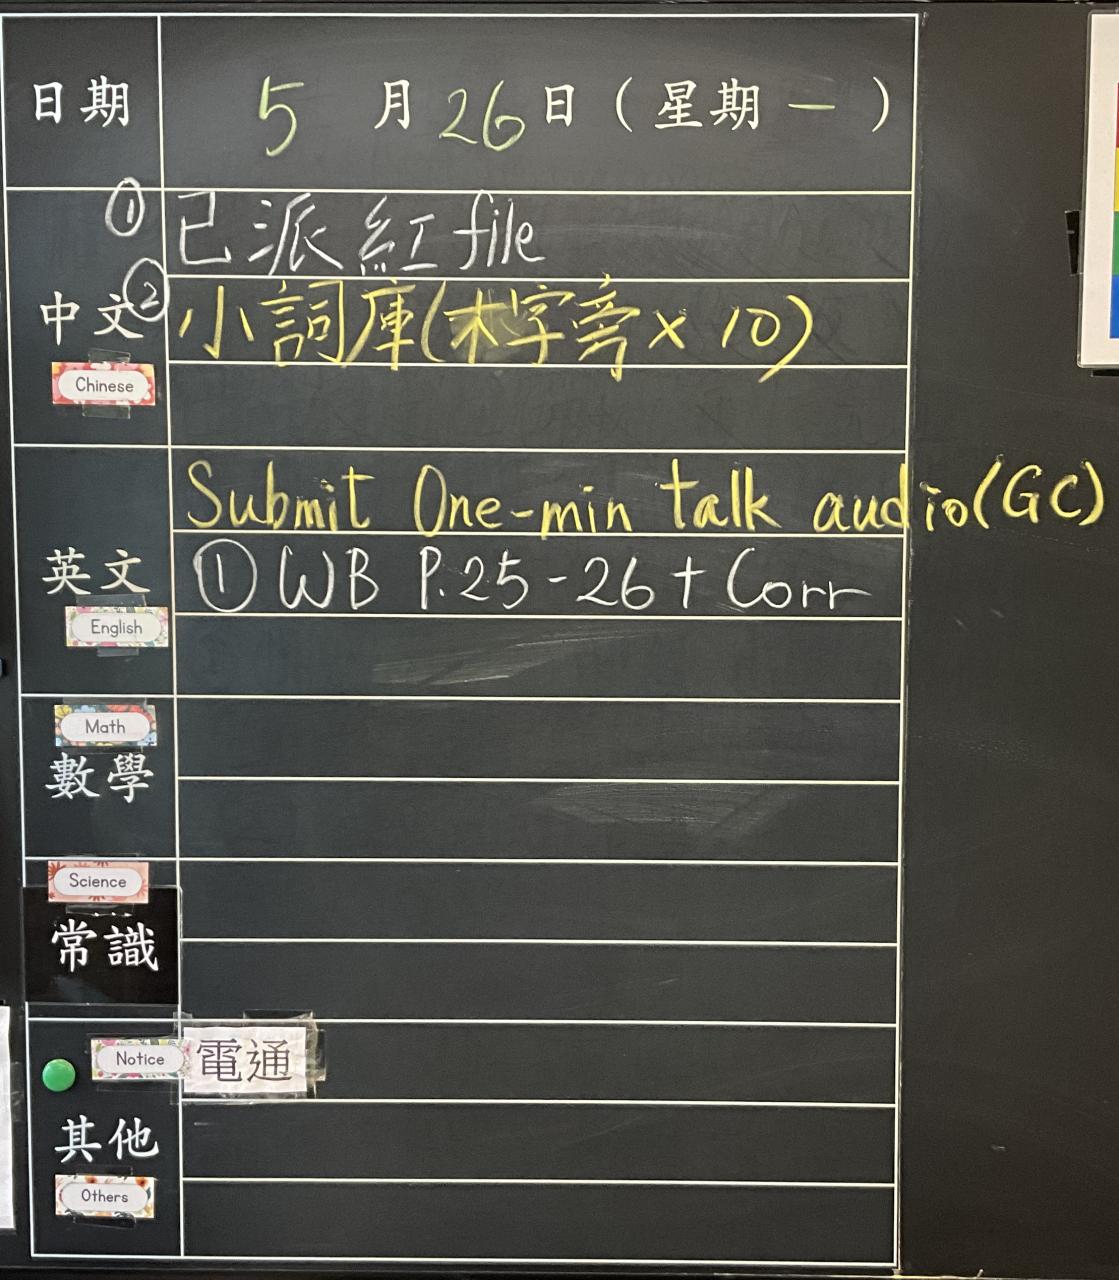 日期 5 月 26 日 ( 星期 一 )
① 已派紅file
中文 ② 小詞庫(木字旁 x 10)
Chinese
Submit One-min talk audio(GC)
英文 ① WB P.25-26 + Corr
English
Math
數學
Science
常識
Notice 電通
其他
Others